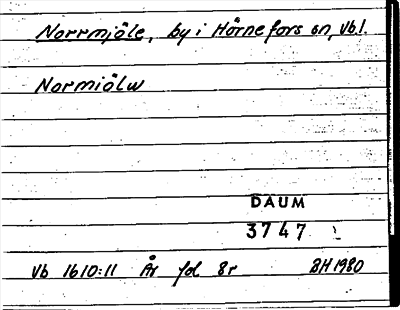 Norrmjöle, by i Hörnefors sn, Vb l.
Normiölw
DAUM
3747
Vb 1610:11 År fol 8r BH 1980